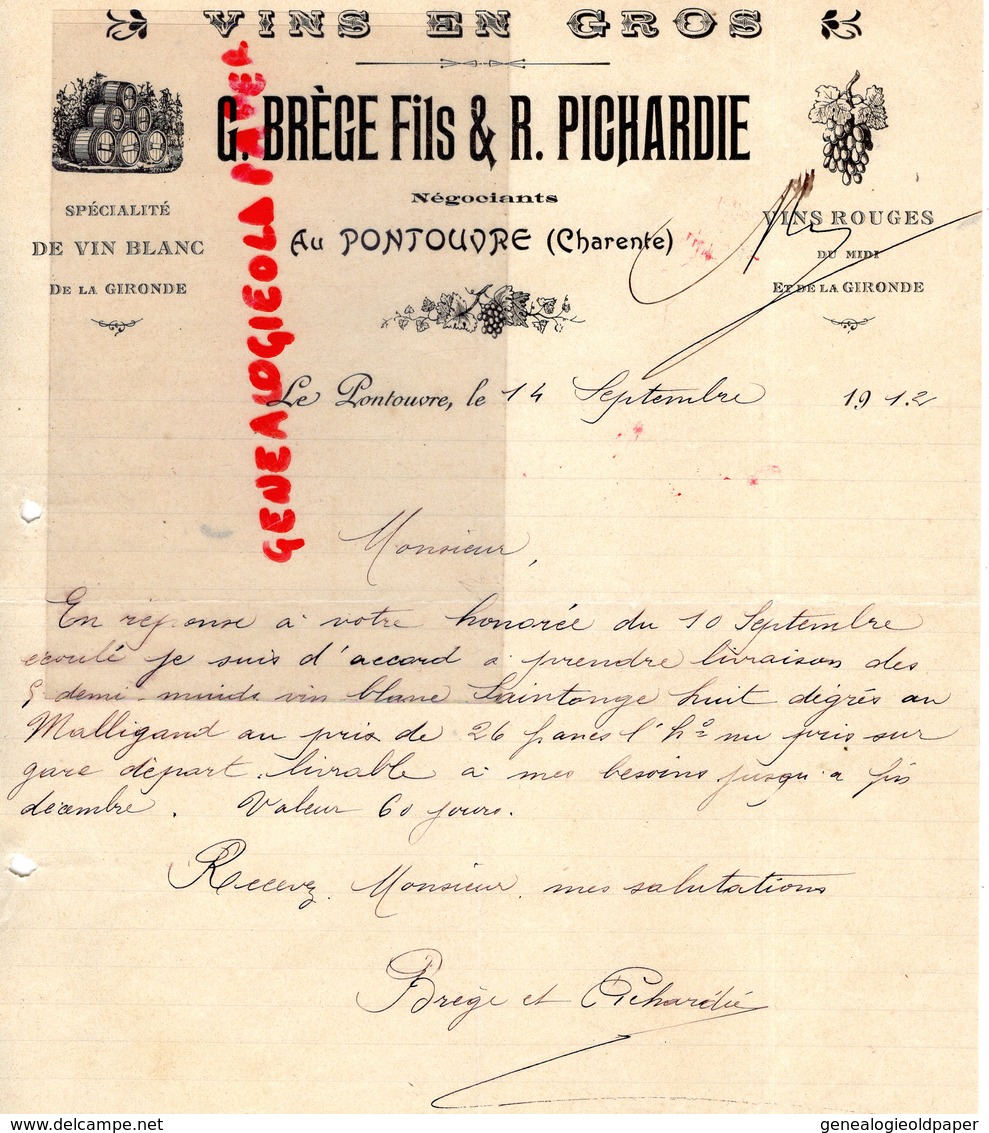 VINS EN GROS
G. BRÈGE Fils & R. PICHARDIE
Négociants
Au PONTOUVRE (Charente)
SPÉCIALITÉ
DE VIN BLANC
DE LA GIRONDE
VINS ROUGES
DU MIDI
ET DE LA GIRONDE
GENEALOGIEOLDPAPER
Le Pontouvre, le 14 Septembre 1912
Monsieur,
En réponse à votre honorée du 10 Septembre
écoulé je suis d'accord à prendre livraison des
demi muids vin blanc Saintonge huit dégrés au
Malligand au prix de 26 francs l'hº nu pris sur
gare départ, livrable à mes besoins jusqu'a fin
décembre. Valeur 60 jours.
Recevez Monsieur mes salutations
Brège et Pichardie
delcampe.net
genealogieoldpaper